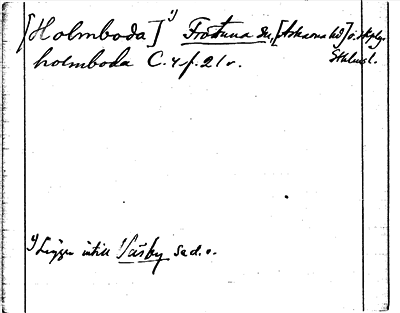 [Holmboda] 1) Frötuna sn, [Åkers hd] o. skplg.
Sthlmsl.
holmboda C. 4 f. 21 v.
1) Ligger intill Väsby sad. o.